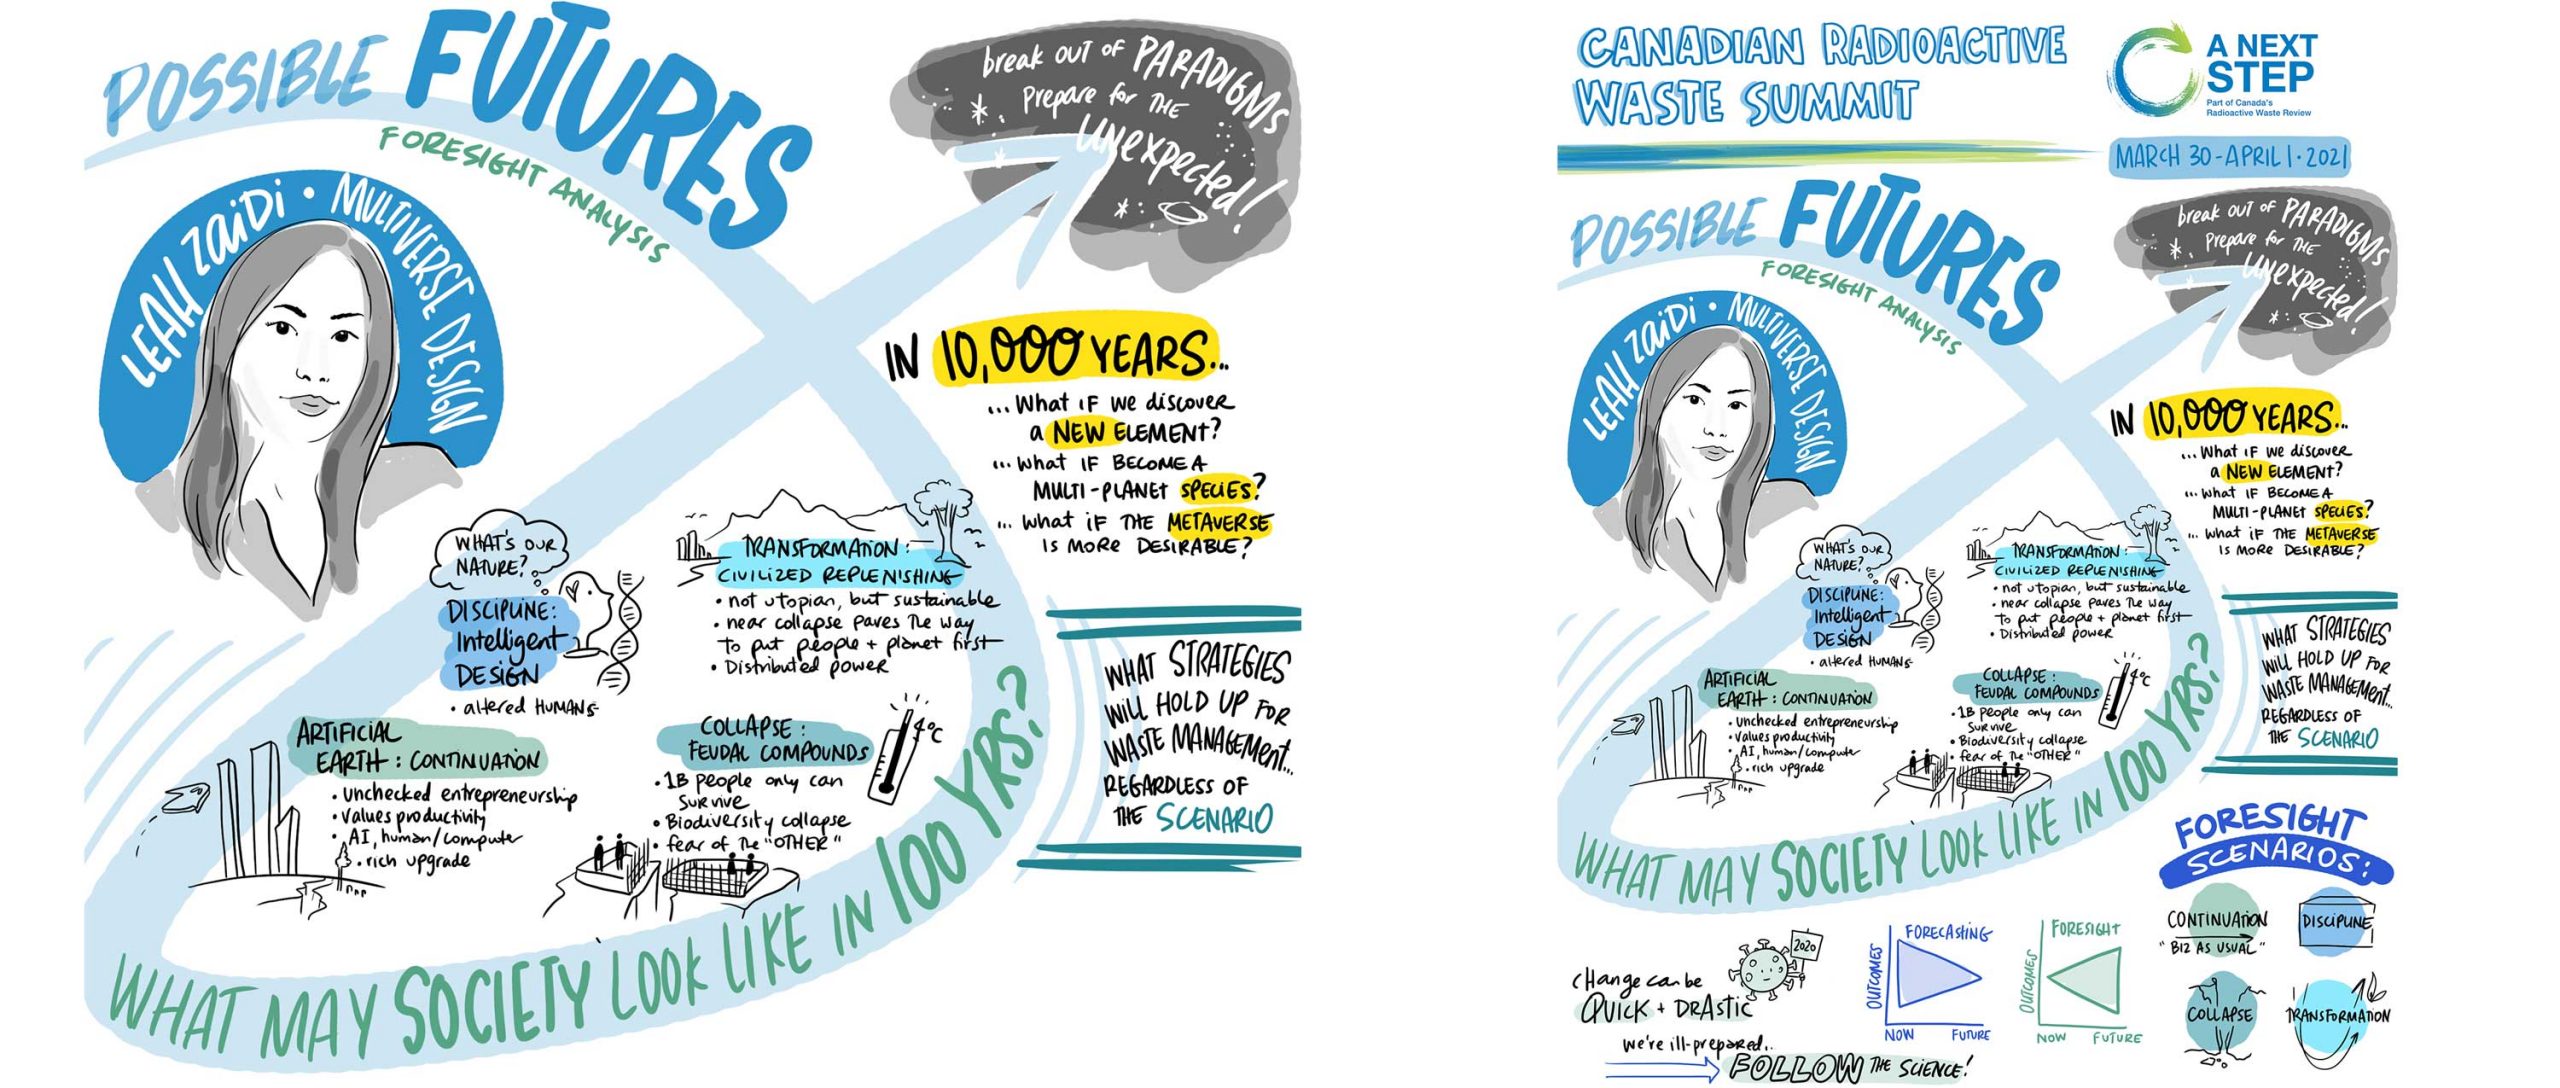 POSSIBLE FUTURES
FORESIGHT ANALYSIS
LEAH ZAIDI • MULTIVERSE DESIGN
break out of PARADIGMS
Prepare for THE
UNexpected!
IN 10,000 YEARS...
... What IF we discover
a NEW ELEMENT?
... What IF BECOME A
MULTI-PLANET SPECIES?
... What iF THE METAVERSE
IS MORE DESIRABLE?
WHAT'S OUR
NATURE?
DISCIPLINE:
Intelligent
DESIGN
• altered HUMANS
TRANSFORMATION:
CIVILIZED REPLENISHING
• not utopian, but sustainable
• near collapse paves The way
To put people + planet first
• Distributed power
ARTIFICIAL
EARTH: CONTINUATION
• unchecked entrepreneurship
• values productivity
• AI, human/computer
• rich upgrade
COLLAPSE:
FEUDAL COMPOUNDS
• 1B people only can
survive
• Biodiversity collapse
• fear of The "OTHER"
4°C
WHAT STRATEGIES
WILL HOLD UP FOR
WASTE MANAGEMENT...
REGARDLESS OF
THE SCENARIO
WHAT MAY SOCIETY LOOK LIKE IN 100 YRS?
CANADIAN RADIOACTIVE
WASTE SUMMIT
A NEXT
STEP
Part of Canada's
Radioactive Waste Review
MARCH 30 - APRIL 1 • 2021
POSSIBLE FUTURES
FORESIGHT ANALYSIS
LEAH ZAIDI • MULTIVERSE DESIGN
break out of PARADIGMS
Prepare for THE
UNexpected!
IN 10,000 YEARS...
... What IF we discover
a NEW ELEMENT?
... What IF BECOME A
MULTI-PLANET SPECIES?
... What iF THE METAVERSE
IS MORE DESIRABLE?
WHAT'S OUR
NATURE?
DISCIPLINE:
Intelligent
DESIGN
• altered HUMANS
TRANSFORMATION:
CIVILIZED REPLENISHING
• not utopian, but sustainable
• near collapse paves The way
To put people + planet first
• Distributed power
ARTIFICIAL
EARTH: CONTINUATION
• unchecked entrepreneurship
• values productivity
• AI, human/computer
• rich upgrade
COLLAPSE:
FEUDAL COMPOUNDS
• 1B people only can
survive
• Biodiversity collapse
• fear of The "OTHER"
4°C
WHAT STRATEGIES
WILL HOLD UP FOR
WASTE MANAGEMENT...
REGARDLESS OF
THE SCENARIO
WHAT MAY SOCIETY LOOK LIKE IN 100 YRS?
FORESIGHT
SCENARIOS:
CONTINUATION
"BIZ AS USUAL"
DISCIPLINE
COLLAPSE
TRANSFORMATION
2020
CHange can be
QUICK + DRAStic
we're ill-prepared..
FOLLOW THE SCIENCE!
FORECASTING
OUTCOMES
NOW FUTURE
FORESIGHT
OUTCOMES
NOW FUTURE